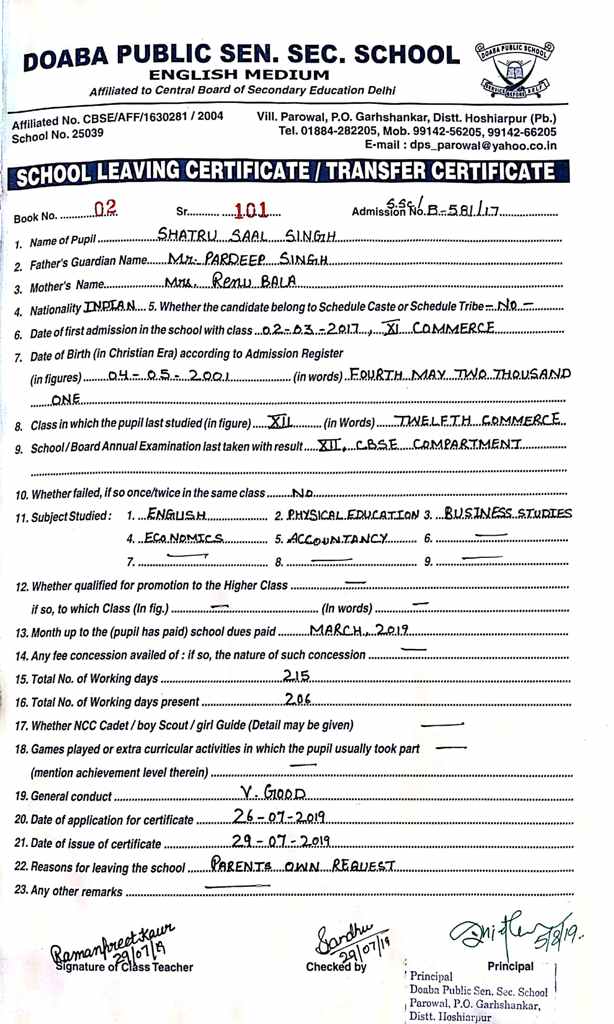 DOABA PUBLIC SEN. SEC. SCHOOL
ENGLISH MEDIUM
Affiliated to Central Board of Secondary Education Delhi
DOABA PUBLIC SCHOOL
SERVICE BEFORE SELF
Affiliated No. CBSE/AFF/1630281 / 2004
School No. 25039
Vill. Parowal, P.O. Garhshankar, Distt. Hoshiarpur (Pb.)
Tel. 01884-282205, Mob. 99142-56205, 99142-66205
E-mail : dps_parowal@yahoo.co.in
SCHOOL LEAVING CERTIFICATE / TRANSFER CERTIFICATE
Book No. 02 Sr. 101 Admission No. S.Sc/B-581/17
1. Name of Pupil SHATRU SAAL SINGH
2. Father's Guardian Name Mr. PARDEEP SINGH
3. Mother's Name Mrs. Renu BALA
4. Nationality INDIAN 5. Whether the candidate belong to Schedule Caste or Schedule Tribe - No -
6. Date of first admission in the school with class 02-03-2017, XI COMMERCE
7. Date of Birth (in Christian Era) according to Admission Register
(in figures) 04-05-2001 (in words) FOURTH MAY TWO THOUSAND
ONE
8. Class in which the pupil last studied (in figure) XII (in Words) TWELFTH COMMERCE
9. School/Board Annual Examination last taken with result XII, CBSE COMPARTMENT
10. Whether failed, if so once/twice in the same class No
11. Subject Studied : 1. ENGLISH 2. PHYSICAL EDUCATION 3. BUSINESS STUDIES
4. ECONOMICS 5. ACCOUNTANCY 6. —
7. — 8. — 9. —
12. Whether qualified for promotion to the Higher Class —
if so, to which Class (In fig.) — (In words) —
13. Month up to the (pupil has paid) school dues paid MARCH, 2019
14. Any fee concession availed of : if so, the nature of such concession —
15. Total No. of Working days 215
16. Total No. of Working days present 206
17. Whether NCC Cadet / boy Scout / girl Guide (Detail may be given) —
18. Games played or extra curricular activities in which the pupil usually took part —
(mention achievement level therein) —
19. General conduct V. GOOD
20. Date of application for certificate 26-07-2019
21. Date of issue of certificate 29-07-2019
22. Reasons for leaving the school PARENTS OWN REQUEST
23. Any other remarks —
Ramanpreet Kaur
29/07/19
Signature of Class Teacher
Sandhu
29/07/19
Checked by
5/8/19
Principal
Principal
Doaba Public Sen. Sec. School
Parowal, P.O. Garhshankar,
Distt. Hoshiarpur